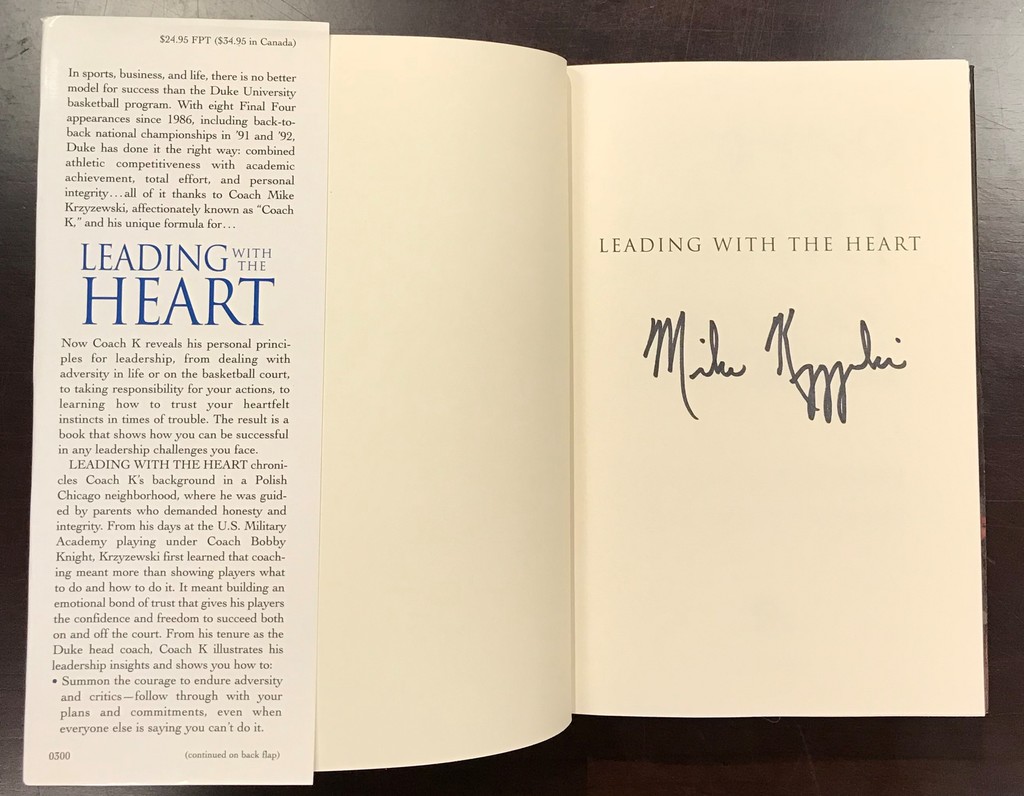 $24.95 FPT ($34.95 in Canada)
In sports, business, and life, there is no better
model for success than the Duke University
basketball program. With eight Final Four
appearances since 1986, including back-to-
back national championships in '91 and '92,
Duke has done it the right way: combined
athletic competitiveness with academic
achievement, total effort, and personal
integrity...all of it thanks to Coach Mike
Krzyzewski, affectionately known as “Coach
K,” and his unique formula for...
LEADING WITH THE
HEART
Now Coach K reveals his personal princi-
ples for leadership, from dealing with
adversity in life or on the basketball court,
to taking responsibility for your actions, to
learning how to trust your heartfelt
instincts in times of trouble. The result is a
book that shows how you can be successful
in any leadership challenges you face.
LEADING WITH THE HEART chroni-
cles Coach K's background in a Polish
Chicago neighborhood, where he was guid-
ed by parents who demanded honesty and
integrity. From his days at the U.S. Military
Academy playing under Coach Bobby
Knight, Krzyzewski first learned that coach-
ing meant more than showing players what
to do and how to do it. It meant building an
emotional bond of trust that gives his players
the confidence and freedom to succeed both
on and off the court. From his tenure as the
Duke head coach, Coach K illustrates his
leadership insights and shows you how to:
• Summon the courage to endure adversity
and critics—follow through with your
plans and commitments, even when
everyone else is saying you can't do it.
0300 (continued on back flap)
LEADING WITH THE HEART
Mike